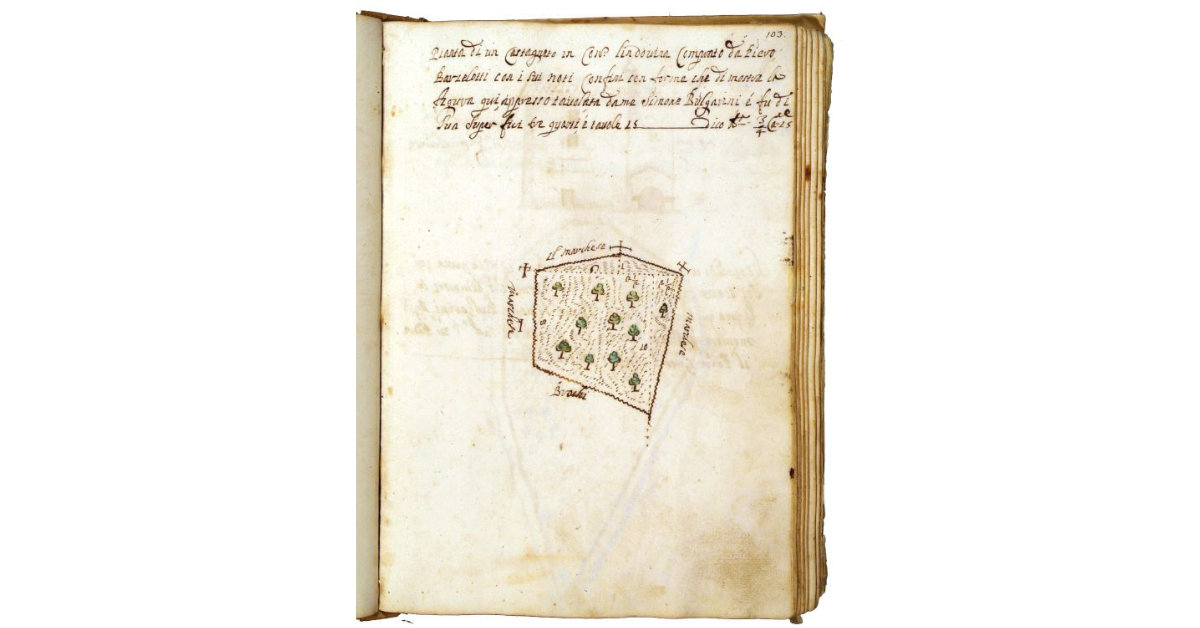 103.
Pianta di un Castagneto in Cont. lindovina Comprato da Piero
Barzelotti con i sui noti Confini con forme che di mostra la
figura qui appresso tavolata da me Simone Bulgarini é fu di
Sua Super fici tre quarti é tavole 25 Dico 3/4 25
il marchese
marchese
marchese
10